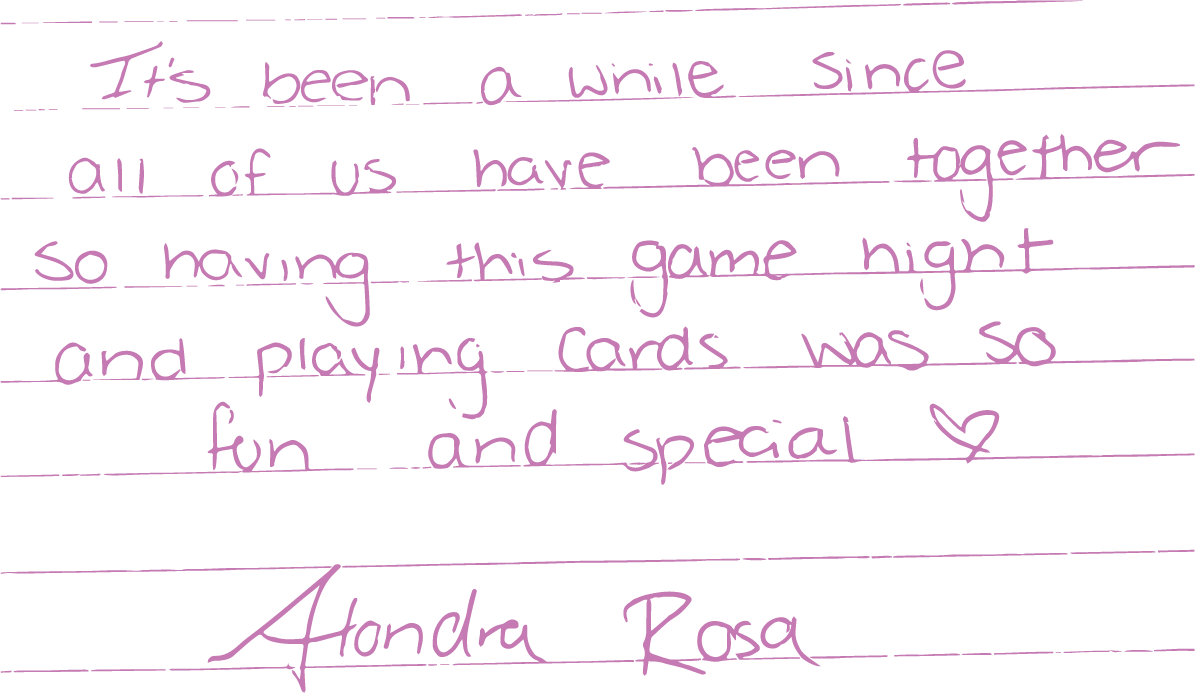 It's been a while since
all of us have been together
so having this game night
and playing cards was so
fun and special ♡
Alondra Rosa